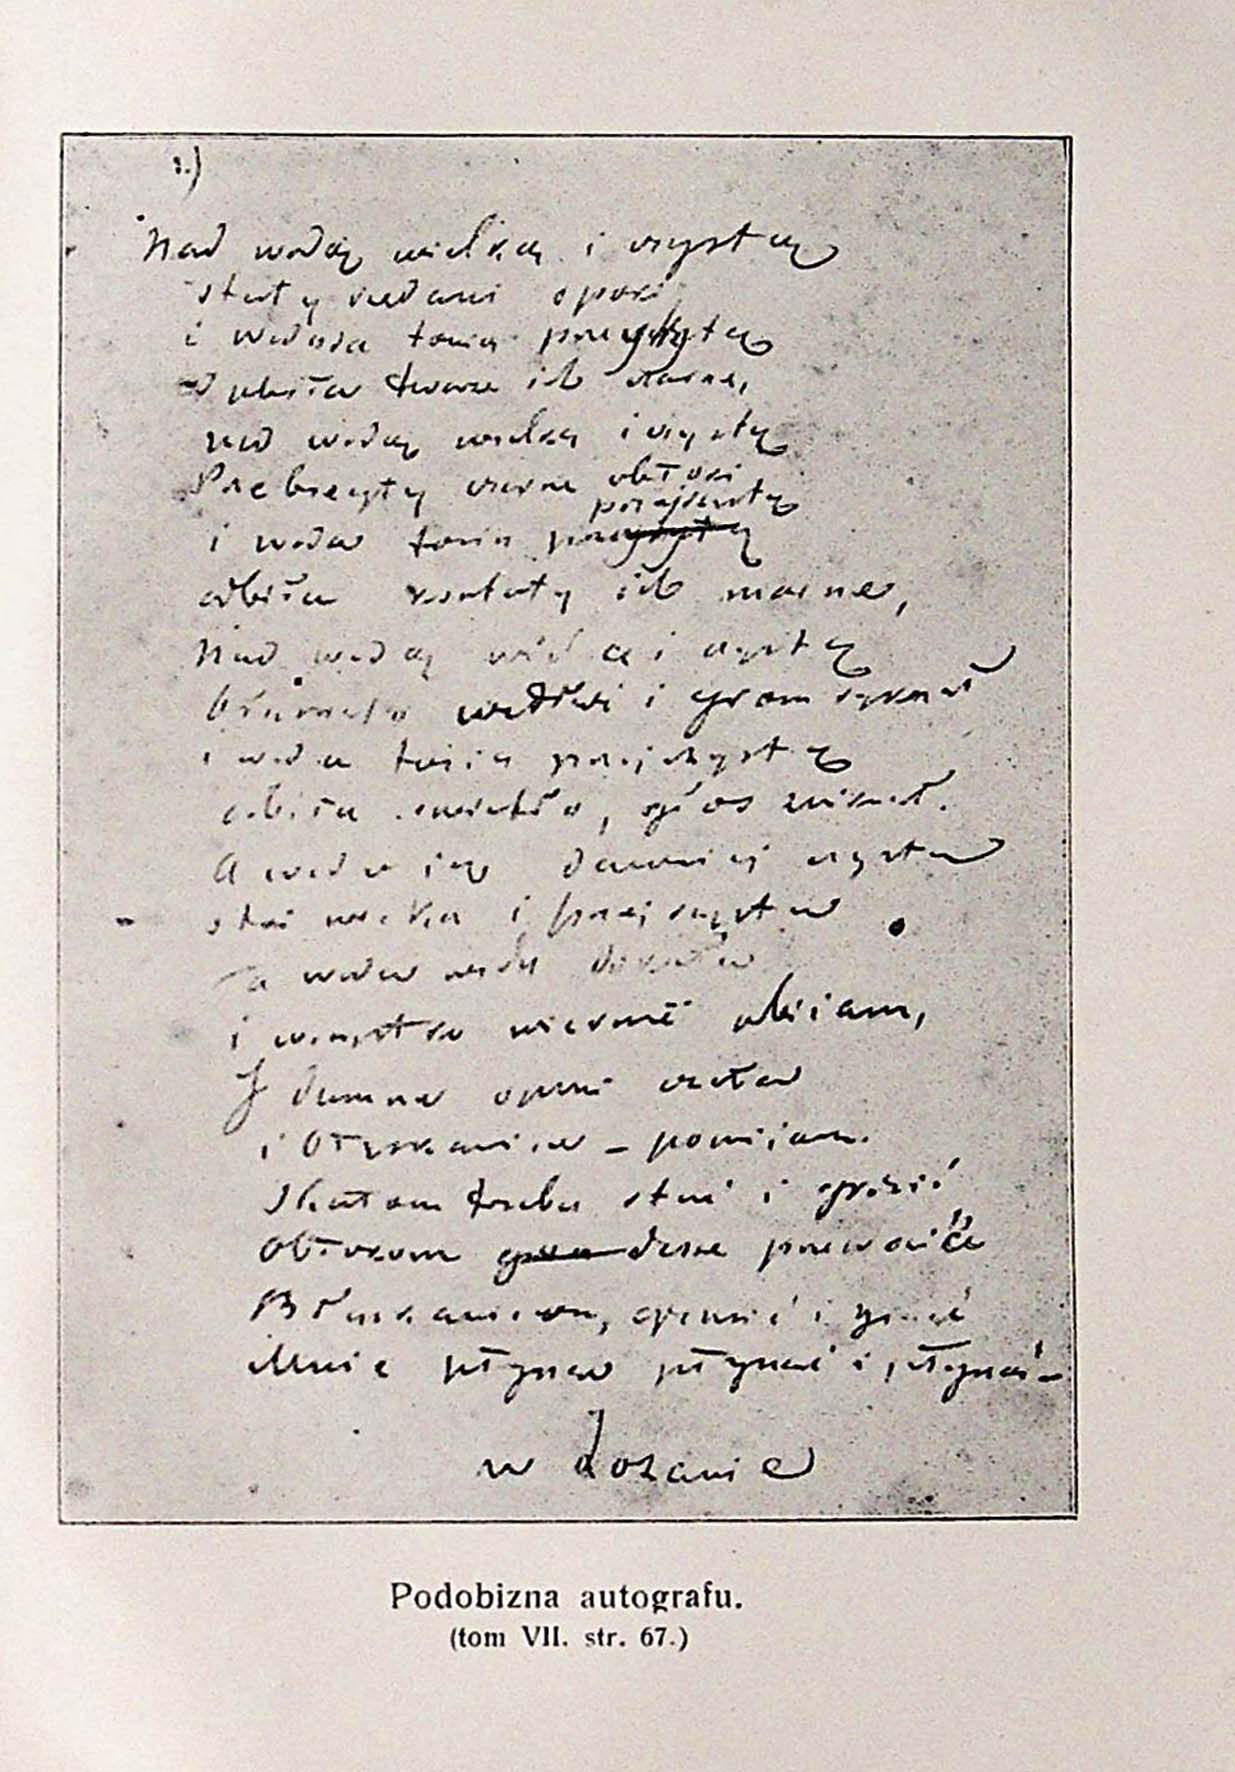 2.)
Nad wodą wielką i czystą
stały rzędami opoki
i woda tonią przeyzystą
odbiła twarze ich czarne,
nad wodą wielką i czystą
Przebiegły czarne obłoki
przejrzystą
i woda tonią
odbiła kształty ich marne,
Nad wodą wielką i czystą
błysnęło i grom ryknął
i woda tonią przejrzystą
odbiła światło, głos zniknął.
A woda jak dawniej czysta
stoi wielka i przejrzysta
Tę wodę widzę dokoła
i wszystko wiernie odbijam,
I dumne opoki czoła
i błyskawice – pomijam.
Skałom trzeba stać i grozić
Obłokom deszcze przewozić
Błyskawicom, grzmieć i ginąć
Mnie płynąć płynąć i płynąć –
w Lozanie
Podobizna autografu.
(tom VII. str. 67.)